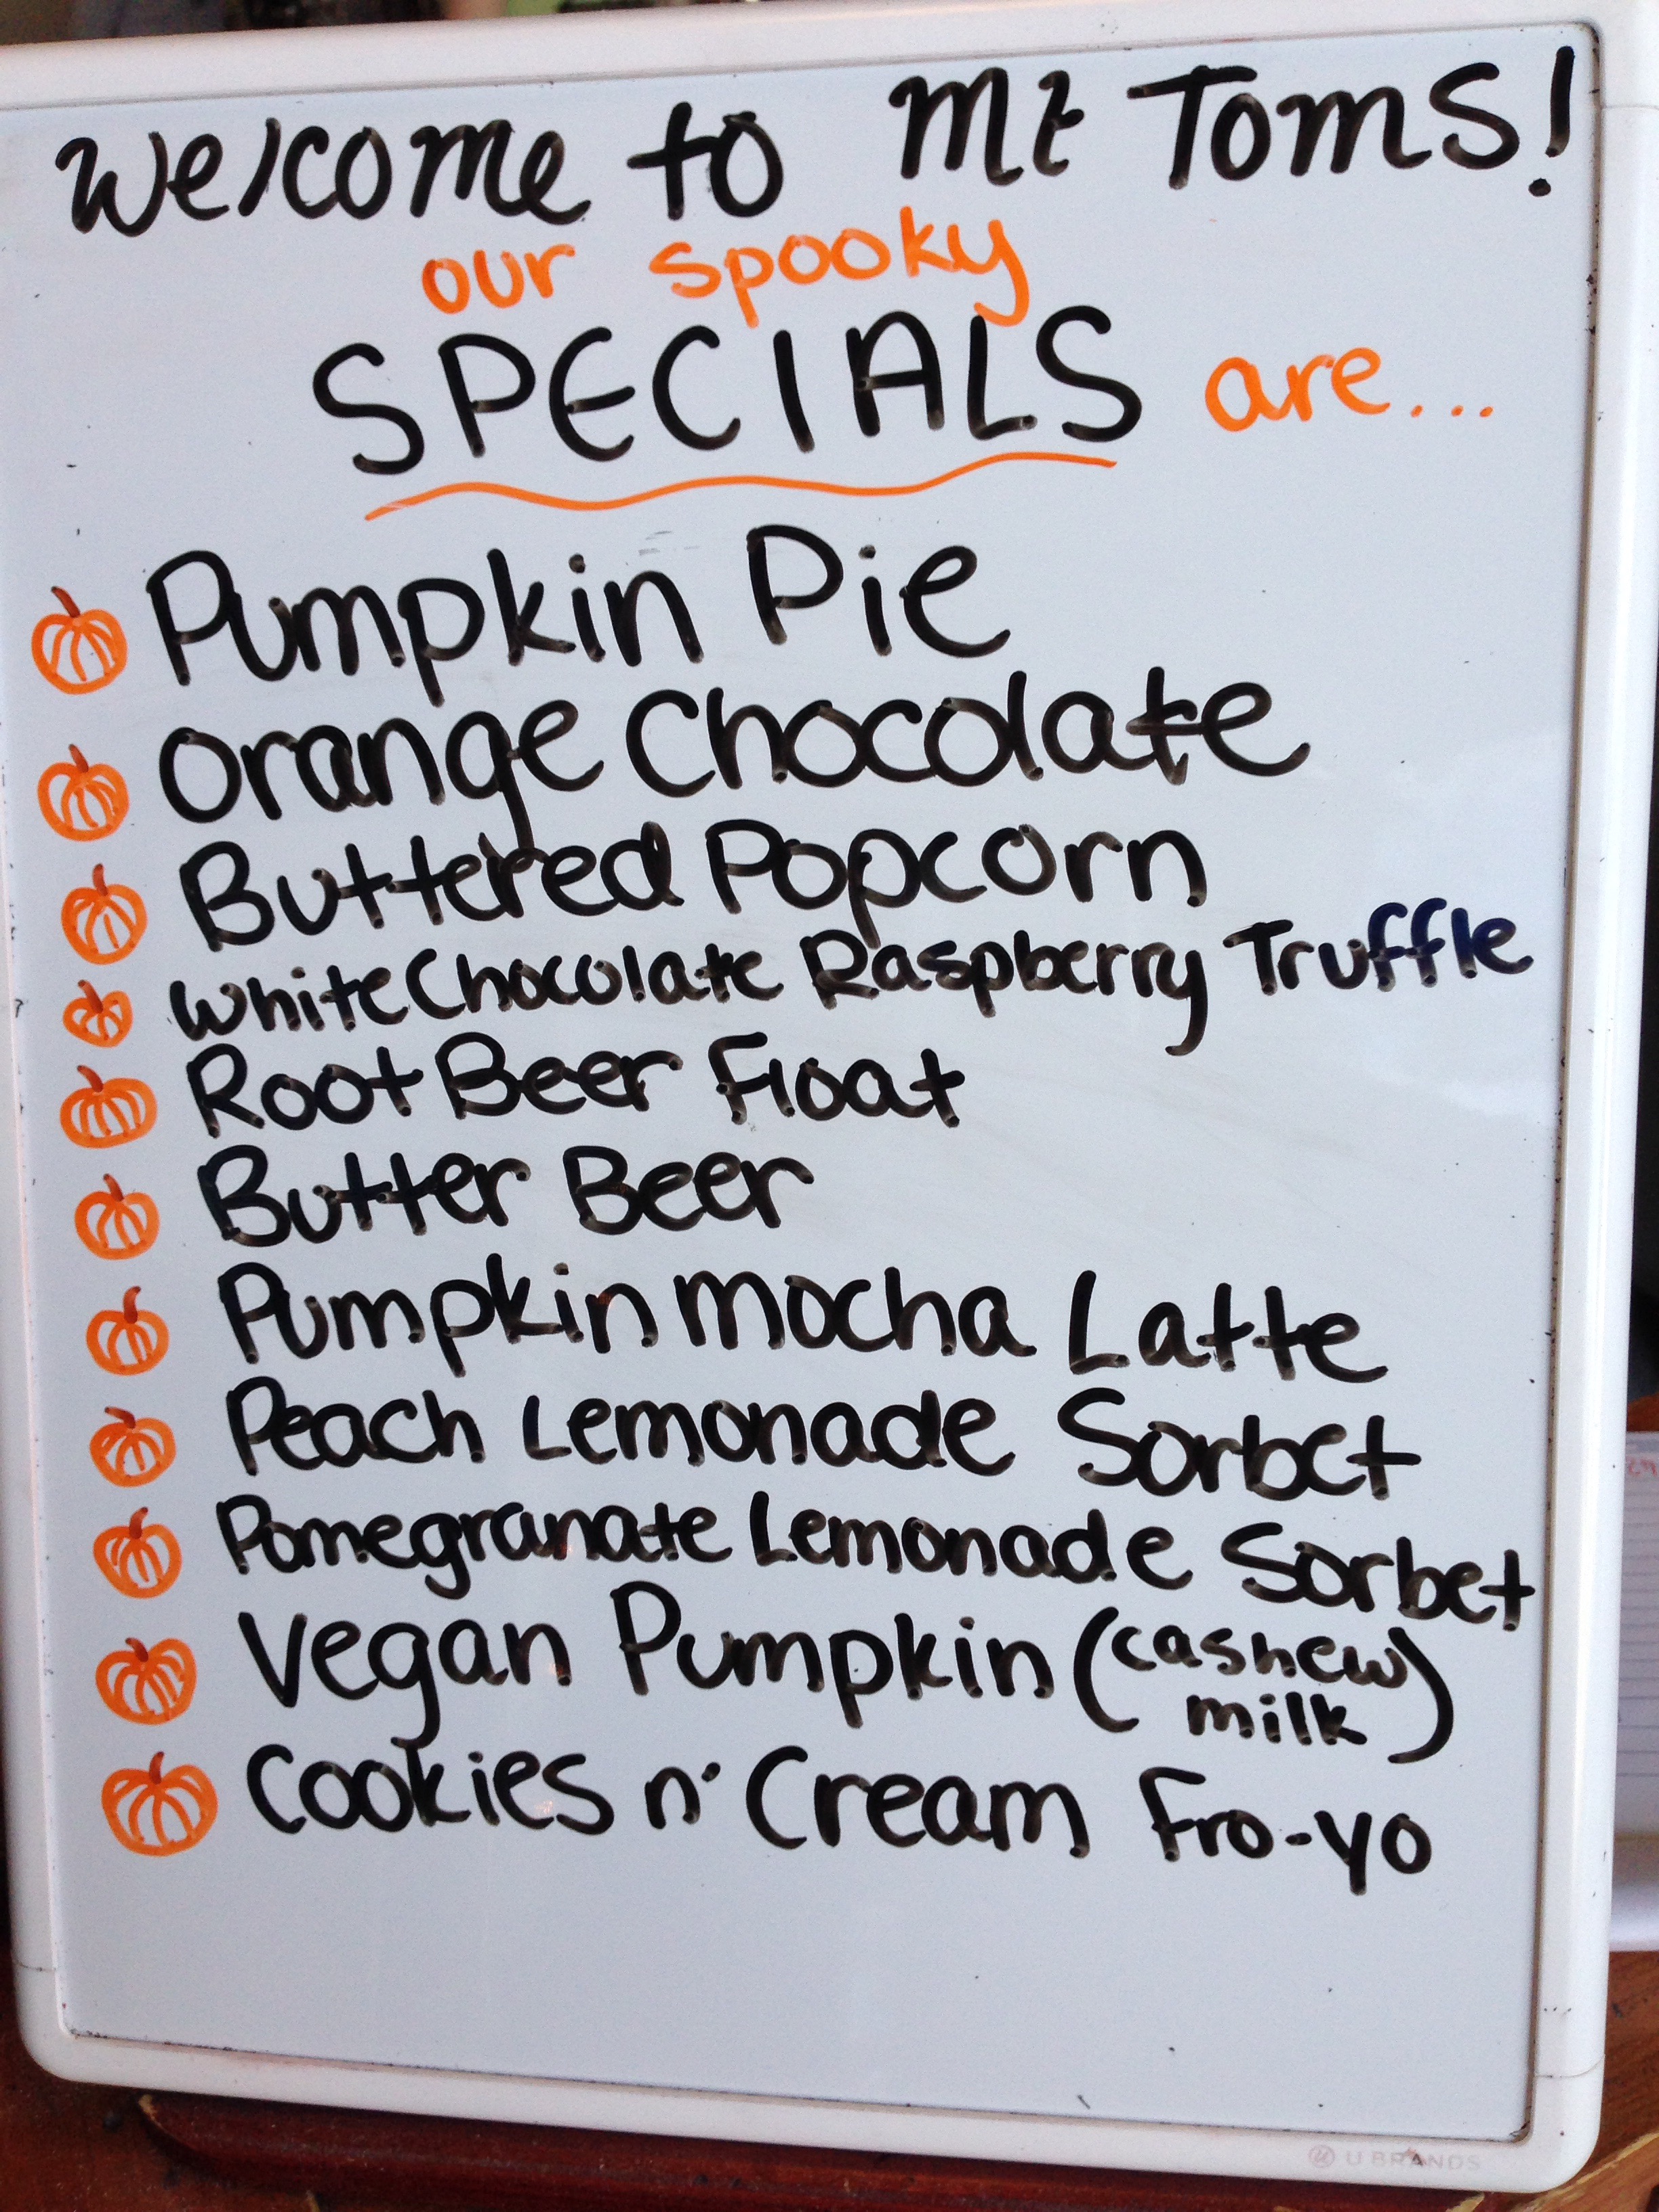 Welcome to Mt Toms!
our spooky
SPECIALS are...
Pumpkin Pie
Orange Chocolate
Buttered Popcorn
White Chocolate Raspberry Truffle
Root Beer Float
Butter Beer
Pumpkin Mocha Latte
Peach Lemonade Sorbet
Pomegranate Lemonade Sorbet
Vegan Pumpkin (cashew
milk)
Cookies n' Cream Fro-yo
U BRANDS